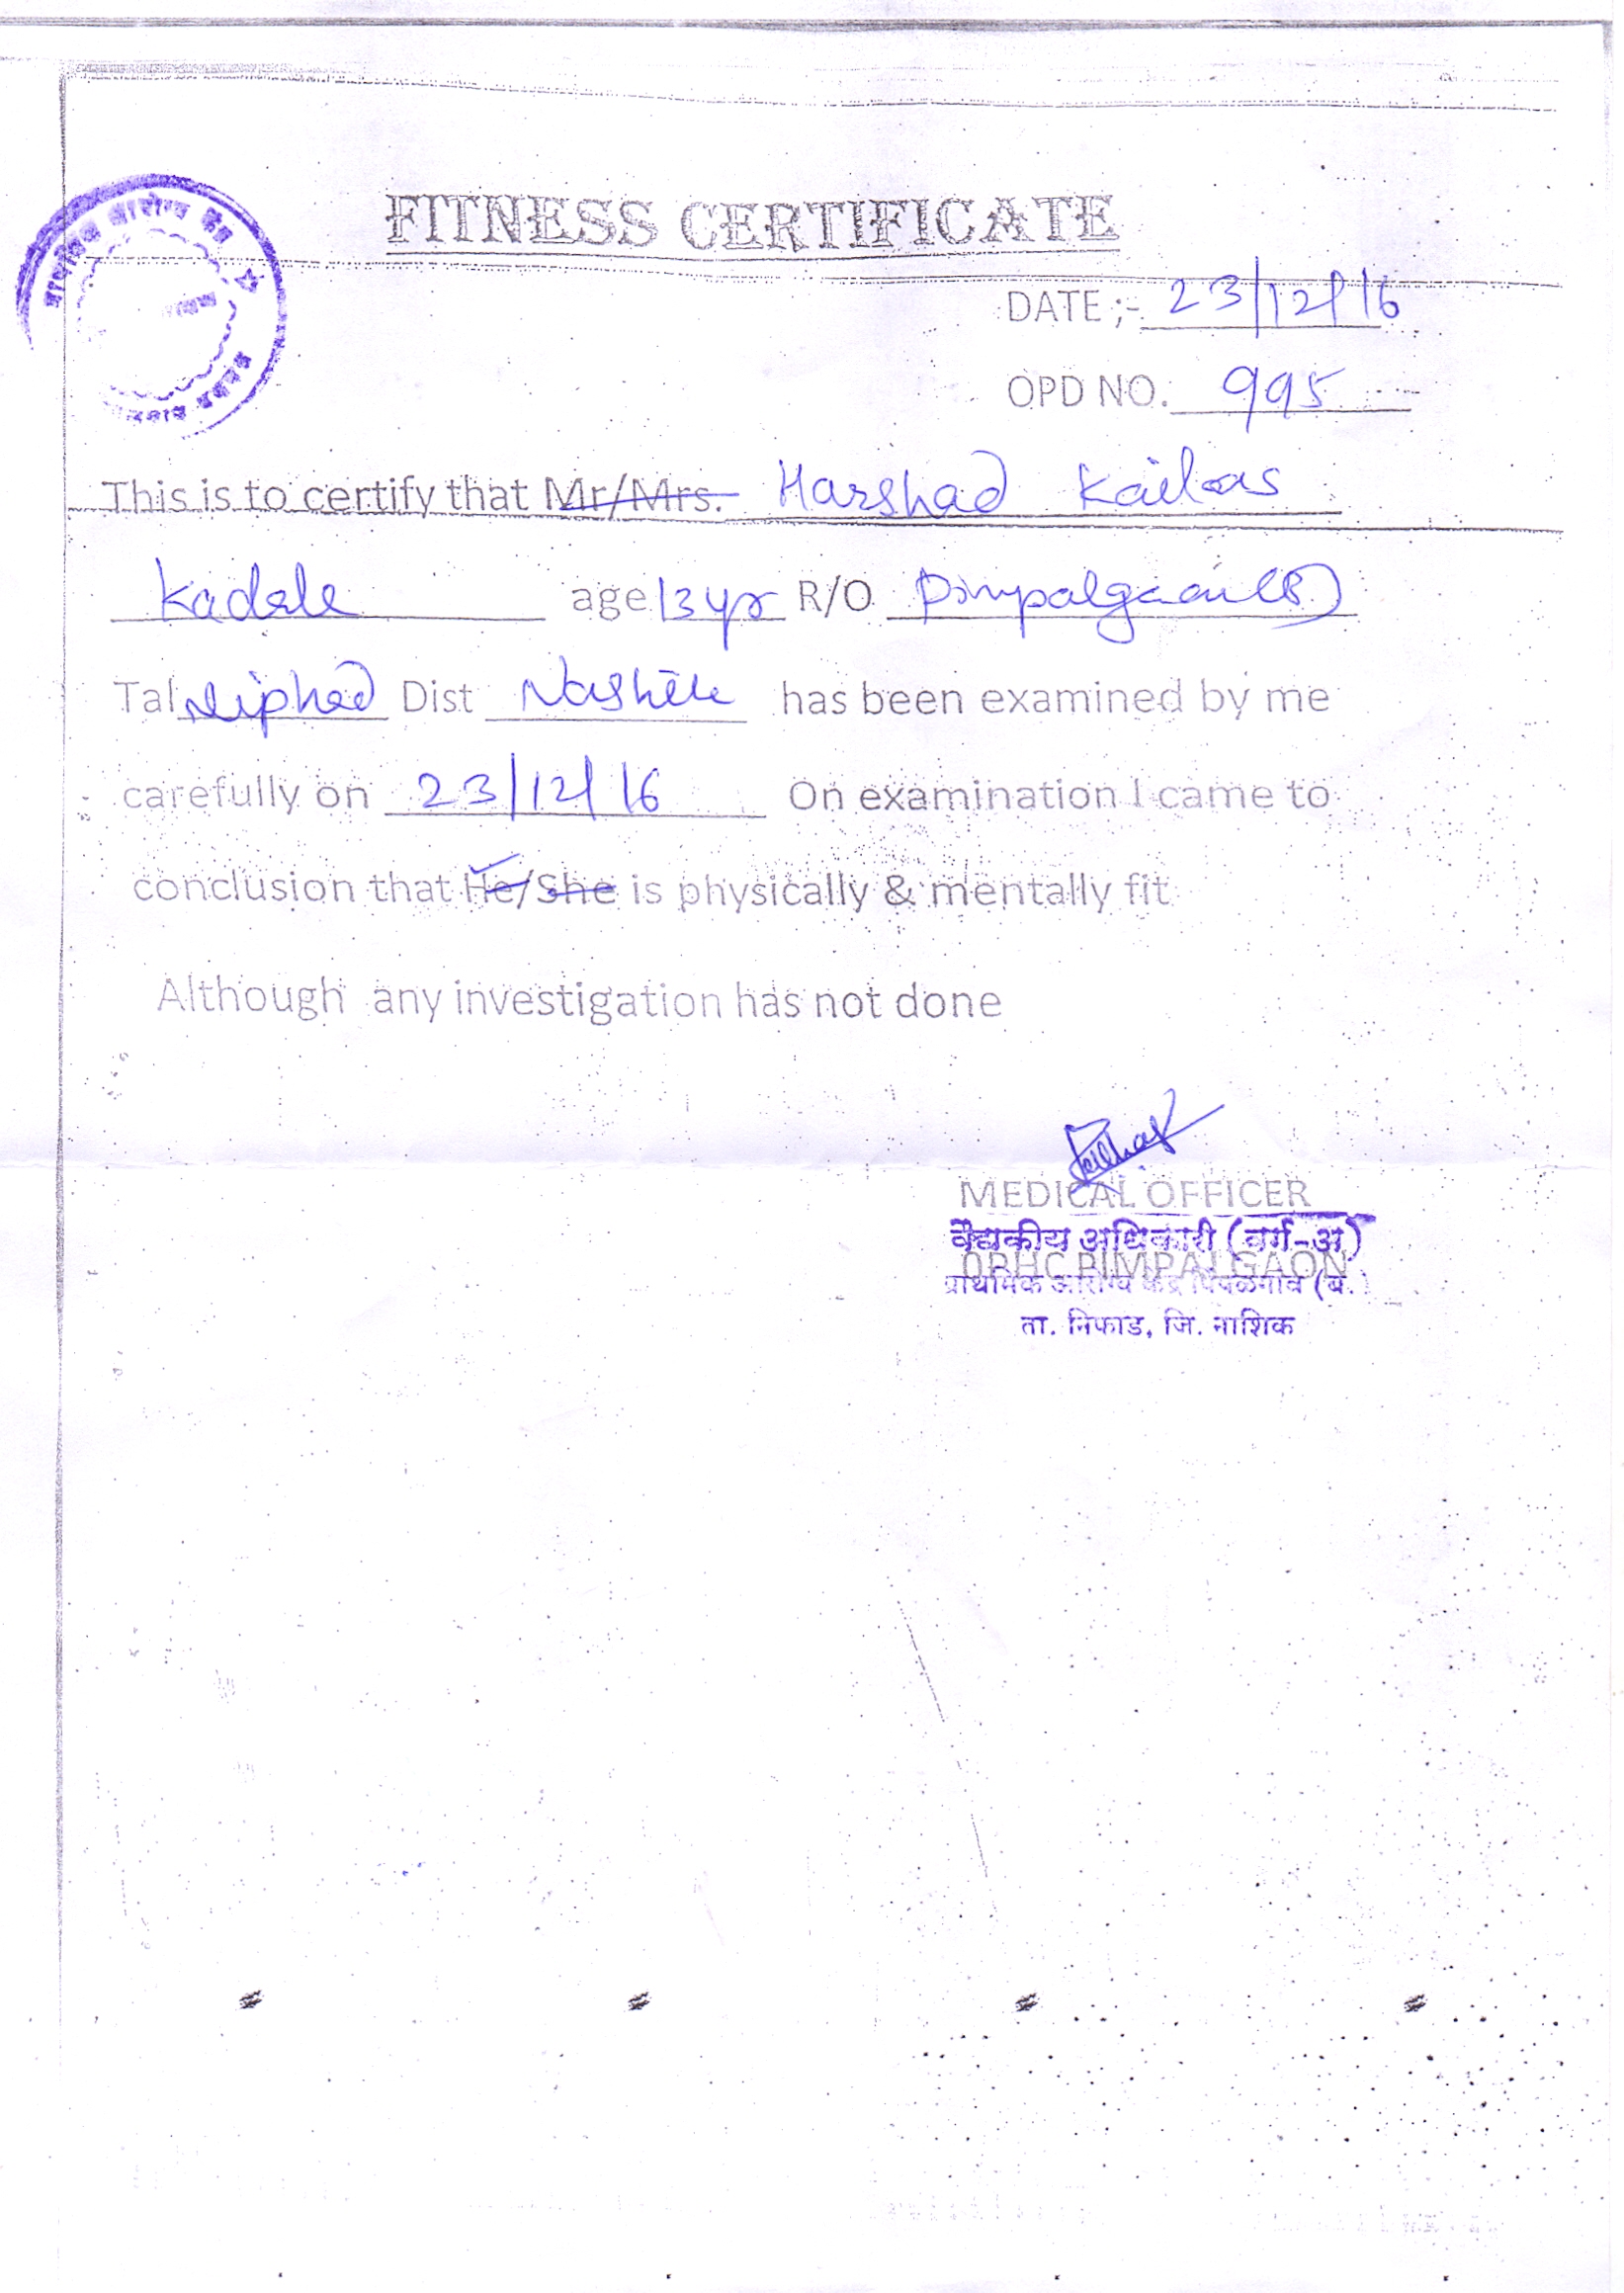 प्राथमिक आरोग्य केंद्र
FITNESS CERTIFICATE
DATE ;- 23/12/16
OPD NO. 995
This is to certify that Mr/Mrs. Harshad Kailas
Kadale age 13 yr R/O Pimpalgaon (B)
Tal Niphad Dist Nashik has been examined by me
carefully on 23/12/16 On examination I came to
conclusion that He/She is physically & mentally fit
Although any investigation has not done
MEDICAL OFFICER
वैद्यकीय अधिकारी (वर्ग-अ)
PHC PIMPALGAON
प्राथमिक आरोग्य केंद्र पिंपळगांव (ब.)
ता. निफाड, जि. नाशिक